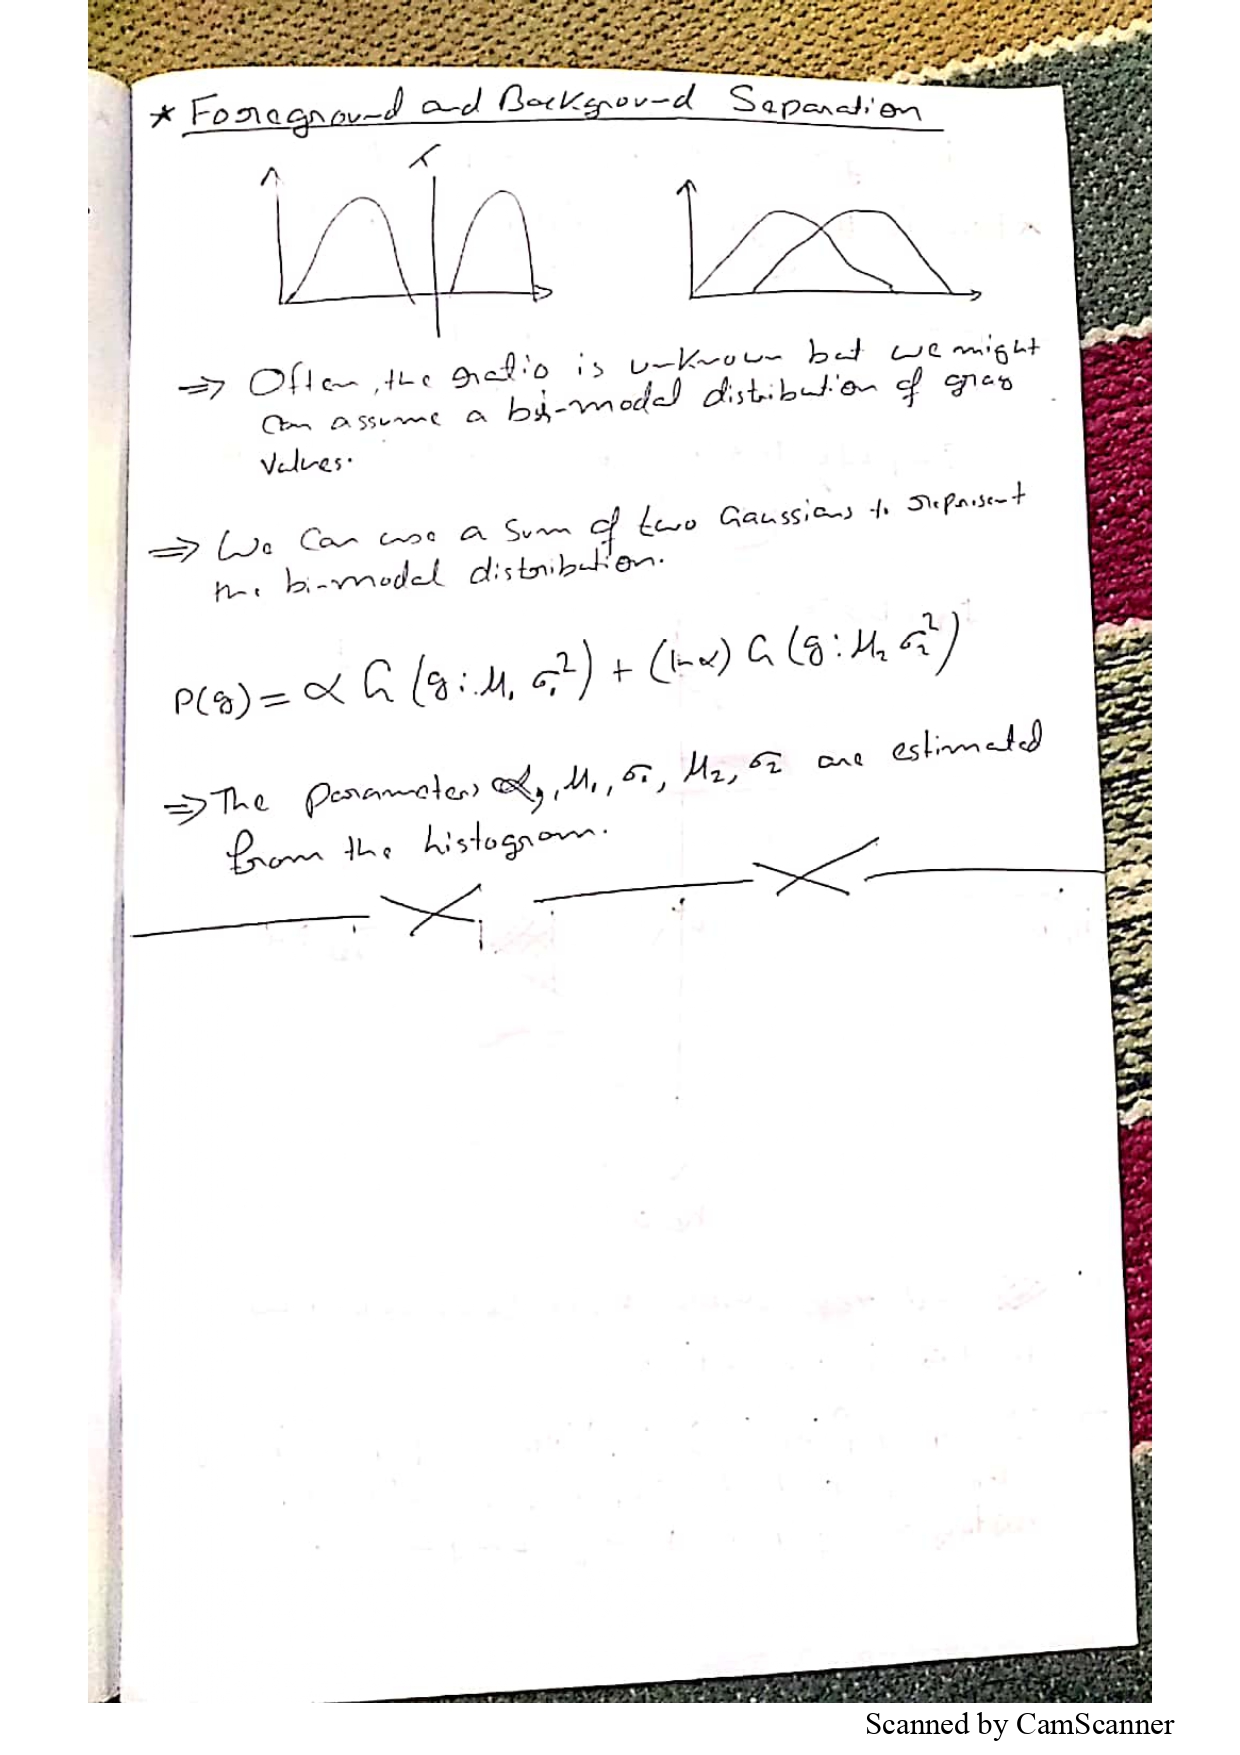 * Foreground and Background Separation
T
⇒ Often, the ratio is unknown but we might
can assume a bi-modal distribution of gray
values.
⇒ We can use a sum of two Gaussians to represent
the bi-modal distribution.
P(g) = α G (g : μ₁ σ₁²) + (1-α) G (g : μ₂ σ₂²)
⇒ The parameters α, μ₁, σ₁, μ₂, σ₂ are estimated
from the histogram.
Scanned by CamScanner